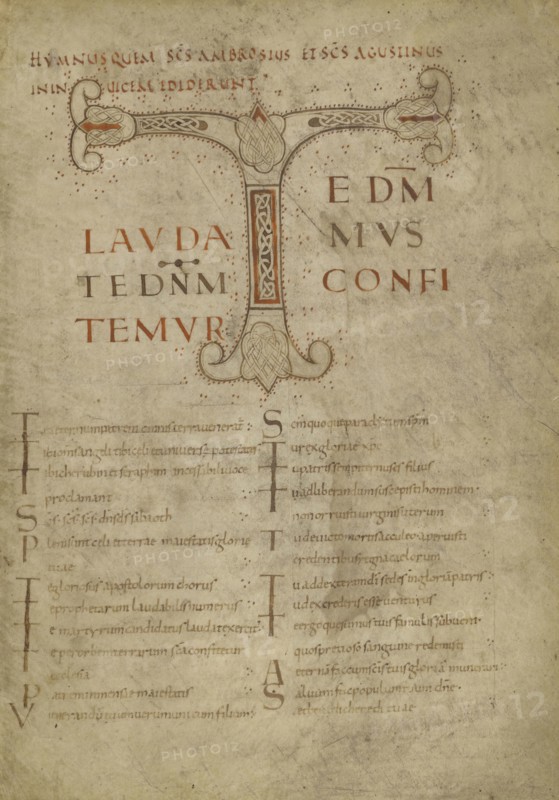 HYMNUS QUEM SCS AMBROSIUS ET SCS AGUSTINUS
ININUICEM DIDERUNT
TE DM
LAVDAMVS
TE DNM CONFI
TEMVR
Te eternum patrem omnis terra uenerat
Tibi omnis angeli tibi celi et uniuersę potestates
Tibi cherubin et seraphin incessabili uoce
proclamant
Scs scs scs dns ds sabaoth
Pleni sunt celi et terrae maiestatis glorię
tuae
Te gloriosus apostolorum chorus
Te prophetarum laudabilis numerus
Te martyrum candidatus laudat exercit
Te per orbem terrarum sca confitetur
ecclesia
Patrem inmensae maiestatis
Venerandū tuum uerum unicum filium
Scm quoque paraclytum spm
Tu rex gloriae xpe
Tu patris sempiternus es filius
Tu ad liberandum suscepisti hominem
non orruisti uirginis uterum
Tu deuicto mortis aculeo aperuisti
credentibus regna caelorum
Tu ad dexteram di sedes in gloria patris
Iudex crederis esse uenturus
Te ergo quesumus tuis famulis subueni
quos pretioso sanguine redemisti
Aeternā fac cum scis tuis gloriā munerari
Saluum fac populum tuum dne
et benedic hereditati tuae
PHOTO12